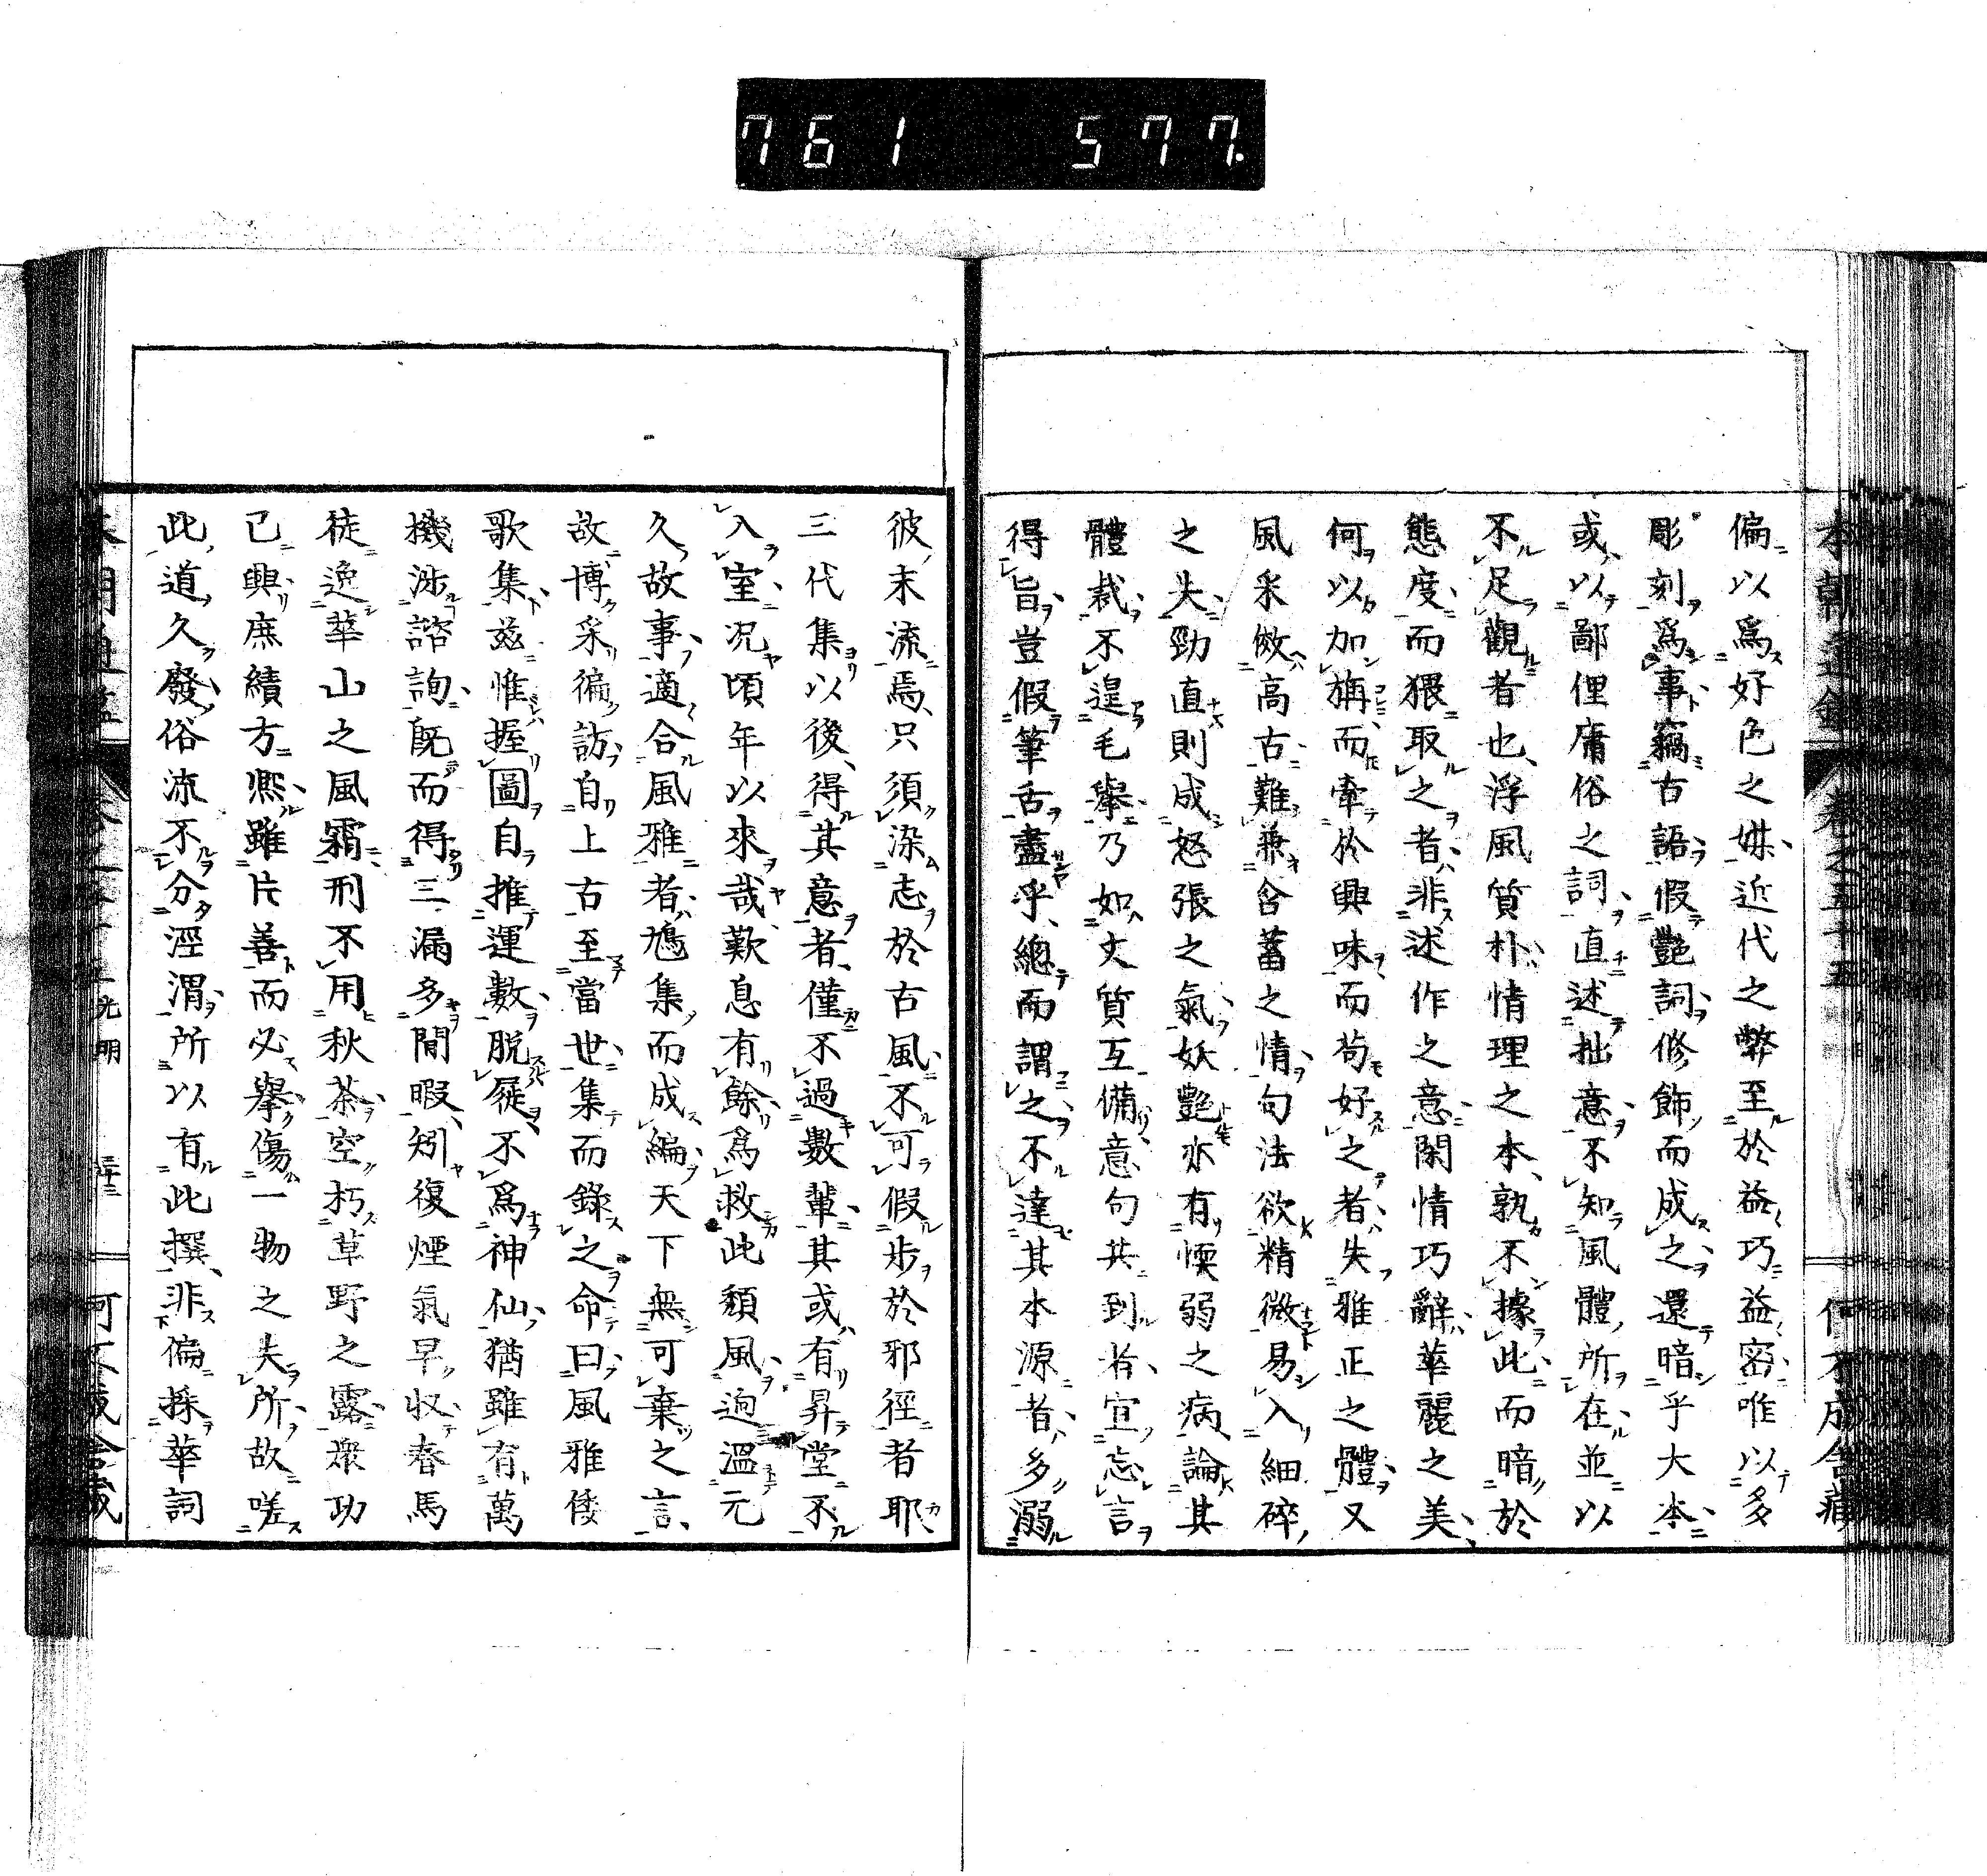 761 577.
本朝通鑑 卷之百二十五 何不成舎藏
偏以爲好色之媒近代之弊至於益巧益密唯以多
彫刻爲事竊古語假艷詞修飾而成之還暗乎大本
或以鄙俚庸俗之詞直述拙意不知風體所在並以
不足觀者也浮風質朴情理之本孰不據此而暗於
態度而猥取之者非述作之意閑情巧辭華麗之美
何以加旃而牽於興味而苟好之者失雅正之體又
風采倣高古難兼含蓄之情句法欲精微易入細碎
之失勁直則成怒張之氣妖艷亦有懦弱之病論其
體裁不遑毛擧乃如文質互備意句共到者宣忘言
得旨豈假筆舌盡乎總而謂之不達其本源者多溺
彼末流焉只須染志於古風不可假步於邪徑者耶
三代集以後得其意者僅不過數輩其或有昇堂不
入室況頃年以來哉歎息有餘爲救此頽風逈溫元
久故事適合風雅者鳩集而成編天下無可棄之言
故博采徧訪自上古至當世集而錄之命曰風雅倭
歌集茲惟握圖自推運數脱屣不爲神仙猶雖有萬
機渉諮詢既而得三漏多間暇矧復煙氣早収春馬
徒逸華山之風霜刑不用秋荼空朽草野之露衆功
已興庶績方熈雖片善而必擧傷一物之失所故嗟
此道久廢俗流不分涇渭所以有此撰非偏採華詞
光明